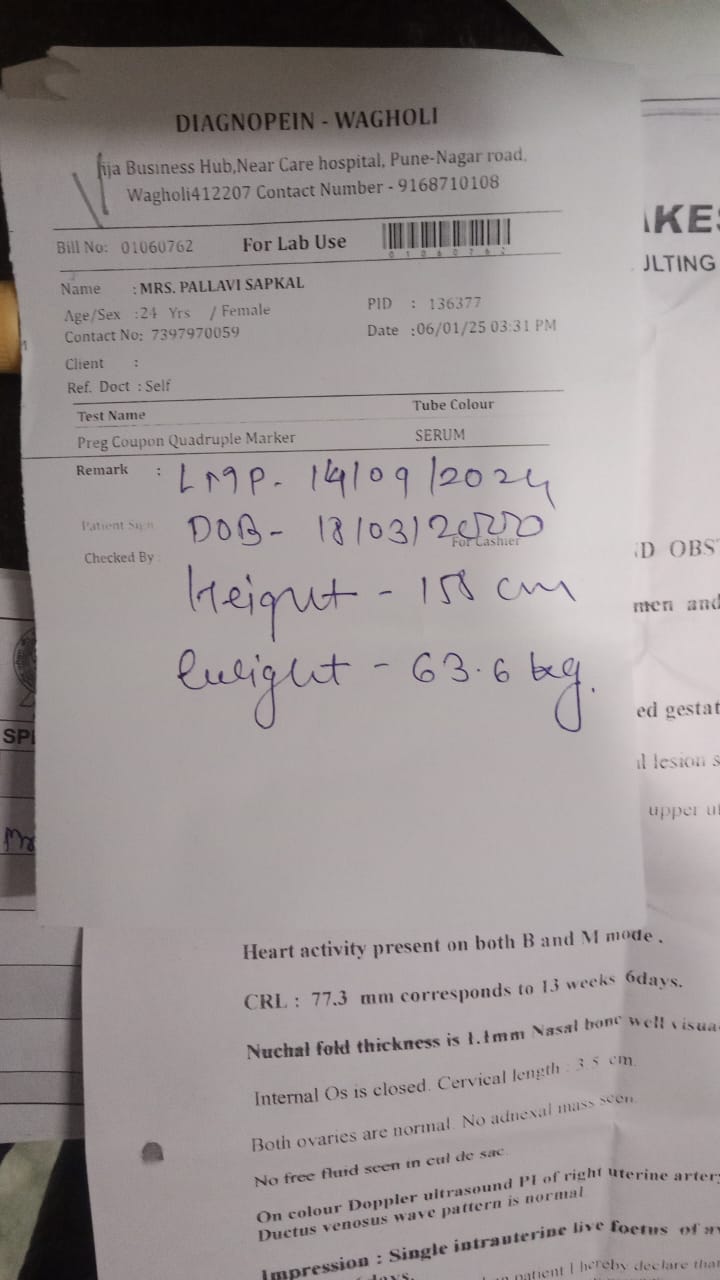 DIAGNOPEIN - WAGHOLI
ija Business Hub,Near Care hospital, Pune-Nagar road,
Wagholi412207 Contact Number - 9168710108
Bill No: 01060762 For Lab Use
01060762
Name : MRS. PALLAVI SAPKAL
Age/Sex :24 Yrs / Female PID : 136377
Contact No: 7397970059 Date :06/01/25 03:31 PM
Client :
Ref. Doct : Self
Test Name Tube Colour
Preg Coupon Quadruple Marker SERUM
Remark : LMP- 14/09/2024
Patient Sign DOB- 18/03/2000
For Cashier
Checked By
Height - 158 cm
Weight - 63.6 kg.
AKES
ULTING
D OBST
men and
ed gestat
al lesion s
upper ut
SPE
Heart activity present on both B and M mode.
CRL : 77.3 mm corresponds to 13 weeks 6days.
Nuchal fold thickness is 1.1mm Nasal bone well visua
Internal Os is closed. Cervical length : 3.5 cm.
Both ovaries are normal. No adnexal mass seen.
No free fluid seen in cul de sac.
On colour Doppler ultrasound PI of right uterine artery
Ductus venosus wave pattern is normal
Impression : Single intrauterine live foetus of av
patient I hereby declare that
days.